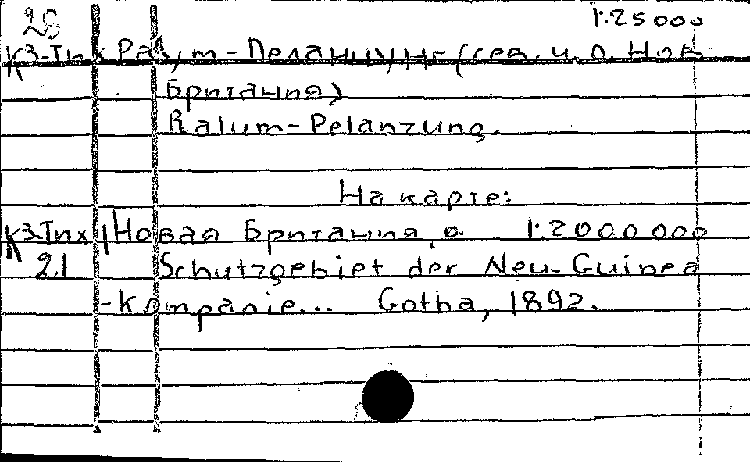 1:25000
28
К3-Тих Ралум-Пеланцунг (сев. ч. о. Нов.
Британия)
Ralum-Pelanzung.
На карте:
К3-Тих Новая Британия, о 1:2000000
21 Schutzgebiet der Neu-Guinea
-Kompanie... Gotha, 1892.